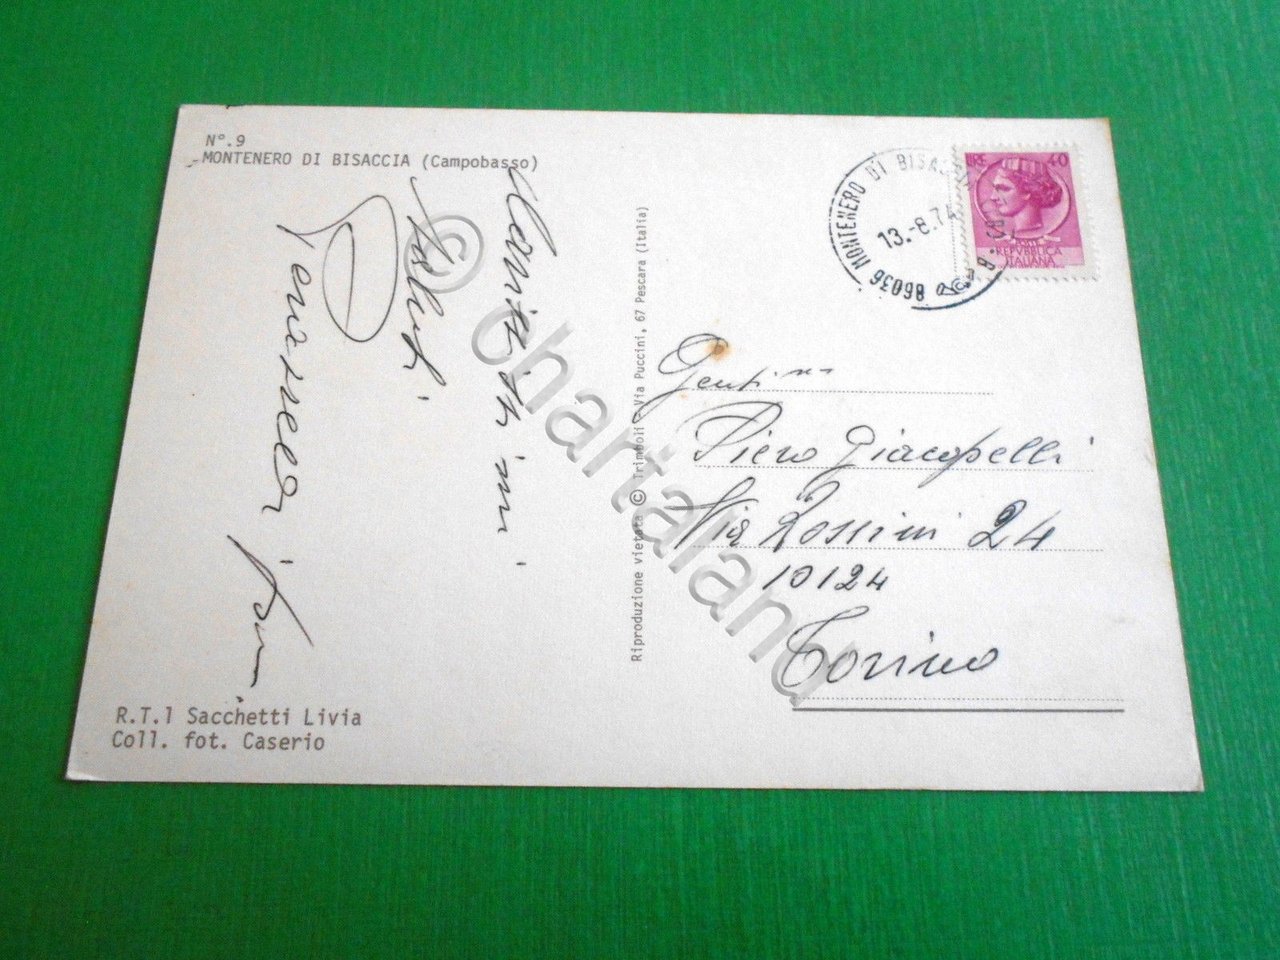 N°.9
MONTENERO DI BISACCIA (Campobasso)
Carissimi
Saluti
R.T.1 Sacchetti Livia
Coll. fot. Caserio
Riproduzione vietata © Trimboli - Via Puccini, 67 Pescara (Italia)
86036 MONTENERO DI BISACCIA
13.-8.74
LIRE 40
POSTE
REPUBBLICA
ITALIANA
Gent.mi
Piero Giacopelli
Via Rossini 24
10124
Torino
© chartaland